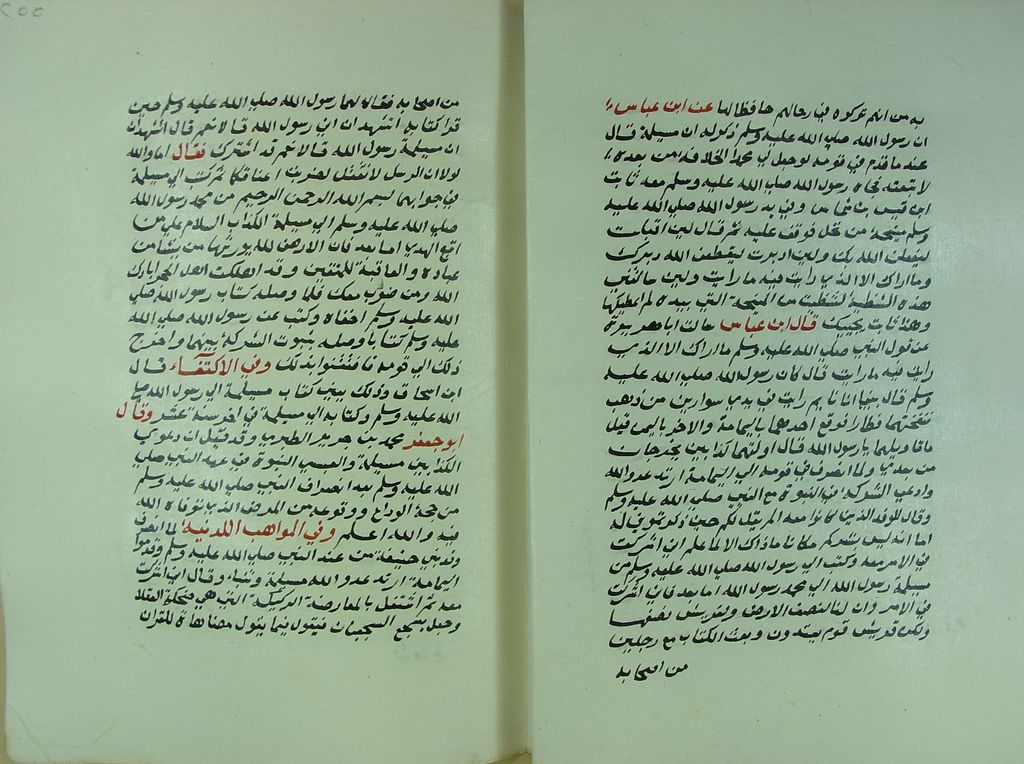 به من انهم تركوه في رحالهم حافظا لها عن ابن عباس
ان رسول الله صلي الله عليه وسلم ذكر له ان مسيلمة قال
عند ما قدم في قومه لو جعل لي محمد الخلافة من بعده
لاتبعته فجاه رسول الله صلي الله عليه وسلم معه ثابت
ابن قيس بن شماس وفي يد رسول الله صلي الله عليه
وسلم من نخل فوقف عليه ثم قال لين اقبلت
ليفعلن الله بك ولين ادبرت ليقطعن الله دبرك
وما اراك الا الذي رايت فيه ما رايت ولين سالتني
هذه الشظية لشظية من التي بيده لم اعطيكها
وهذا ثابت يجيبك قال ابن عباس سالت ابا هريرة
عن قول النبي صلي الله عليه وسلم ما اراك الا الذي
رايت فيه ما رايت قال كان رسول الله صلي الله عليه
وسلم قال بينا انا نايم رايت في يدي سوارين من ذهب
فنفختهما فطارا فوقع احدهما باليمامة والاخر باليمن قيل
ما اولتهما يارسول الله قال اولتهما كذابين يخرجان
من بعدي ولما انصرف في قومه الي اليمامة ارتد عدو الله
وادعي الشركة في النبوة مع النبي صلي الله عليه وسلم
وقال للوفد الذين كانوا معه الم يقل لكم حين ذكرتموني له
اما انه ليس بشركم مكانا ما ذاك الا لما علم اني اشركت
في الامر معه وكتب الي رسول الله صلي الله عليه وسلم من
مسيلمة رسول الله الي محمد رسول الله اما بعد فاني اشركت
في الامر وان لنا نصف الارض ولقريش نصفها
ولكن قريش قوم يعتدون وبعث الكتاب مع رجلين
من اصحابه
من اصحابه فقال لهما رسول الله صلي الله عليه وسلم حين
قرا كتابه اتشهدان اني رسول الله قالا نعم قال اتشهدان
ان مسيلمة رسول الله قالا نعم قد اشترك فقال اما والله
لولا ان الرسل لا تقتل لضربت اعناقكما ثم كتب الي مسيلمة
في جوابهما بسم الله الرحمن الرحيم من محمد رسول الله
صلي الله عليه وسلم الي مسيلمة الكذاب السلام علي من
اتبع الهدي اما بعد فان الارض لله يورثها من يشا من
عباده والعاقبة للمتقين وقد اهلكت اهل الحجر ابادك
الله ومن صوب معك فلما وصله كتاب رسول الله صلي
الله عليه وسلم اخفاه وكتب عن رسول الله صلي الله
عليه وسلم كتابا وصله بثبوت الشركة بينهما واخرج
ذلك الي قومه فافتتنوا بذلك وفي الاكتفاء قال
ابن اسحاق وذلك يعني كتاب مسيلمة الي رسول الله صلي
الله عليه وسلم وكتابه الي مسيلمة في اخر سنة عشر وقال
ابو جعفر محمد بن جرير الطبري وقد قيل ان دعوي
الكذابين مسيلمة والعنسي النبوة في عهد النبي صلي
الله عليه وسلم بعد انصراف النبي صلي الله عليه وسلم
من حجة الوداع ووقوعه من المرض الذي توفاه الله
فيه والله اعلم وفي المواهب اللدنية لما انصرف
وفد بني حنيفة من عند النبي صلي الله عليه وسلم وقدموا
اليمامة ارتد عدو الله مسيلمة وتنباء وقال اني اشركت
معه ثم اشتغل بالمعارضة الركيكة التي هي ضحكة العقلا
وجعل يسجع السجعات فيقول فيما يقول مضاهاة للقران